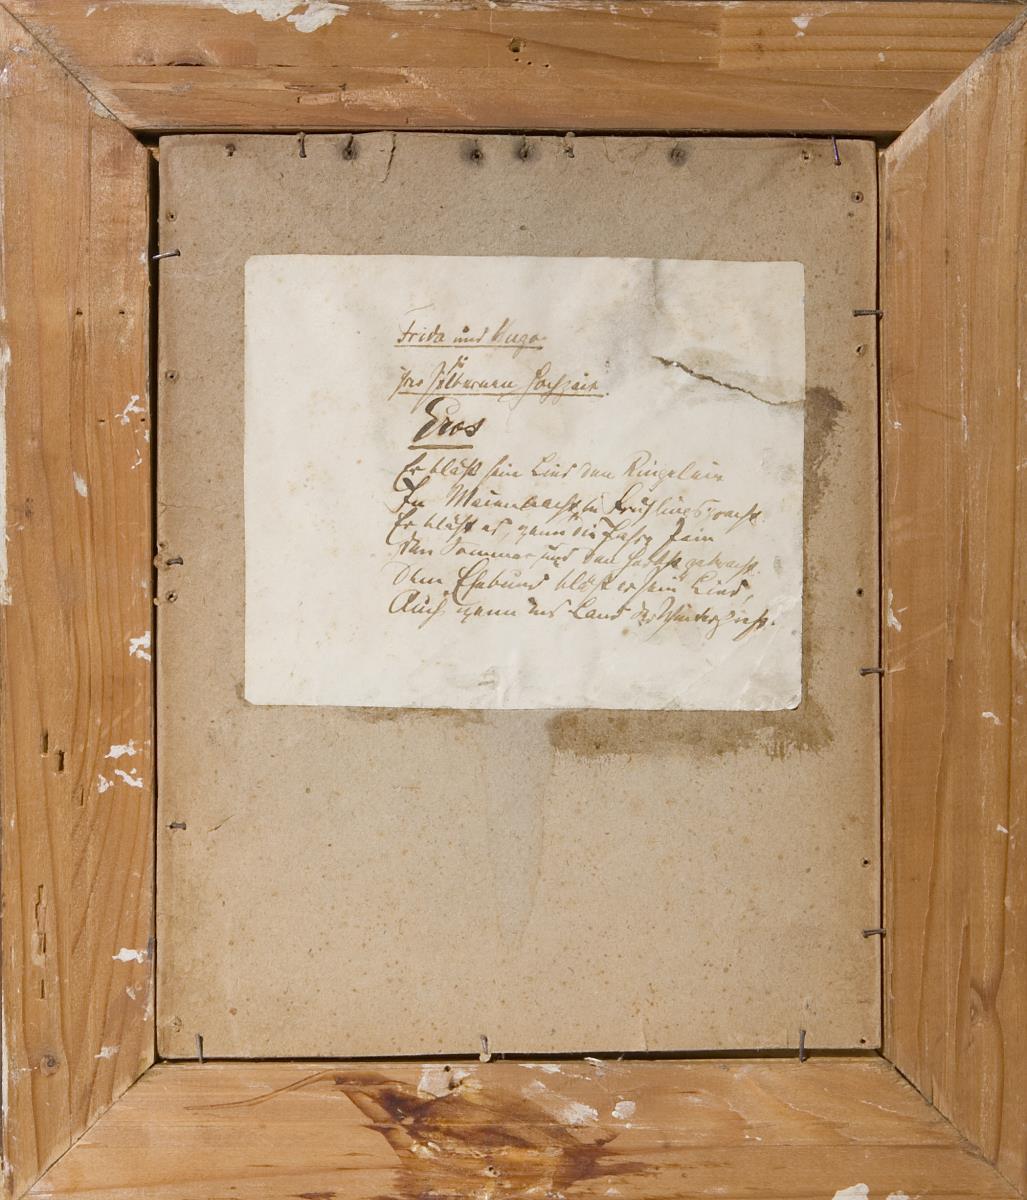 Frida und Hugo
zu
ihrer silbernen Hochzeit.
Eros
Er bläst sein Lied den Ringelrein
In Maiennacht, in Frühlingspracht
Er bläst es, wenn die Jahre
den Sommer und den Herbst gebracht.
Dem Ehebund bläst er sein Lied,
Auch wenn ins Land der Winter zieht.